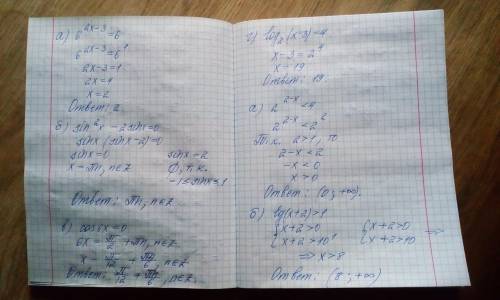 а) 6^(2x-3) = 6
6^(2x-3) = 6^1
2x-3=1
2x=4
x=2
Ответ: 2
б) sin²x - 2sinx=0
sinx (sinx-2)=0
sinx=0 sinx=2
x=πn, n∈Z ∅, т.к.
-1≤sinx≤1
Ответ: πn, n∈Z.
в) cos6x=0
6x = π/2 + πn, n∈Z
x = π/12 + πn/6, n∈Z
Ответ: π/12 + πn/6, n∈Z.
г) log₂(x-3)=4
x-3=2^4
x=19
Ответ: 19.
а) 2^(2-x) < 4
2^(2-x) < 2^2
Т.к. 2>1, то
2-x<2
-x<0
x>0
Ответ: (0; +∞).
б) lg(x+2)>1
{x+2>0 {x+2>0 ⇒
{x+2>10¹ {x+2>10
⇒ x>8
Ответ: (8; +∞)